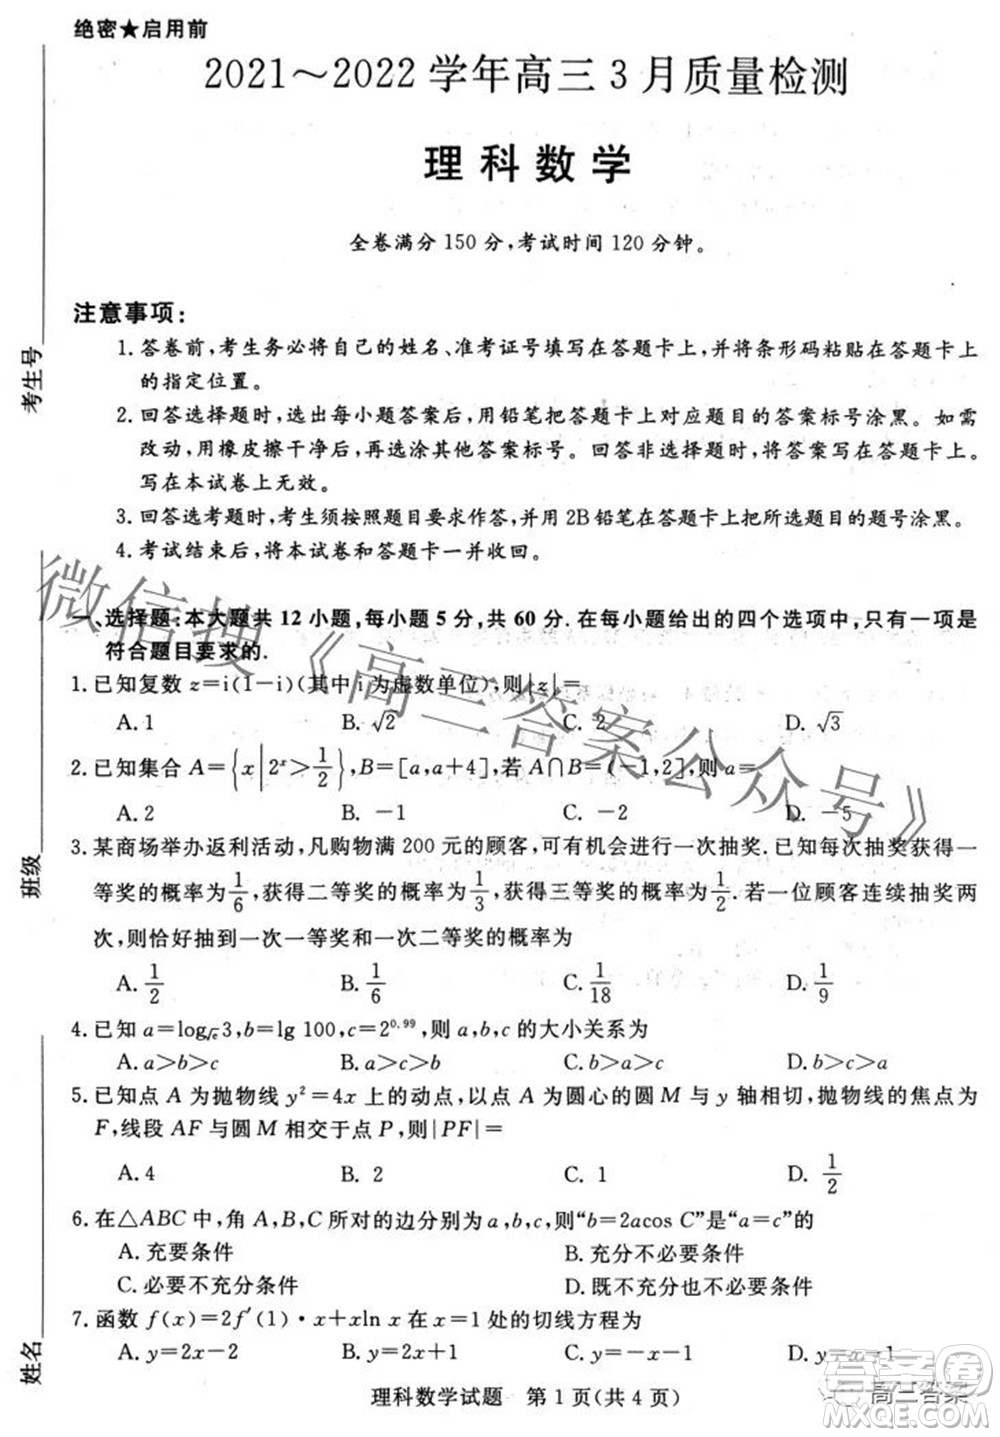 绝密★启用前
2021～2022学年高三3月质量检测
理科数学
全卷满分150分,考试时间120分钟。
注意事项:
1. 答卷前,考生务必将自己的姓名、准考证号填写在答题卡上,并将条形码粘贴在答题卡上
的指定位置。
2. 回答选择题时,选出每小题答案后,用铅笔把答题卡上对应题目的答案标号涂黑。如需
改动,用橡皮擦干净后,再选涂其他答案标号。回答非选择题时,将答案写在答题卡上。
写在本试卷上无效。
3. 回答选考题时,考生须按照题目要求作答,并用2B铅笔在答题卡上把所选题目的题号涂黑。
4. 考试结束后,将本试卷和答题卡一并收回。
一、选择题:本大题共12小题,每小题5分,共60分.在每小题给出的四个选项中,只有一项是
符合题目要求的.
1. 已知复数 z=i(1-i)(其中 i 为虚数单位),则|z|=
A. 1 B. √2 C. 2 D. √3
2. 已知集合 A={x|2^x>1/2},B=[a,a+4],若 A∩B=(-1,2],则 a=
A. 2 B. -1 C. -2 D. -5
3. 某商场举办返利活动,凡购物满200元的顾客,可有机会进行一次抽奖.已知每次抽奖获一
等奖的概率为1/6,获得二等奖的概率为1/3,获得三等奖的概率为1/2.若一位顾客连续抽奖两
次,则恰好抽到一次一等奖和一次二等奖的概率为
A. 1/2 B. 1/6 C. 1/18 D. 1/9
4. 已知 a=log_√e 3,b=lg 100,c=2^0.99,则 a,b,c 的大小关系为
A. a>b>c B. a>c>b C. b>a>c D. b>c>a
5. 已知点 A 为抛物线 y²=4x 上的动点,以点 A 为圆心的圆 M 与 y 轴相切,抛物线的焦点为
F,线段 AF 与圆 M 相交于点 P,则|PF|=
A. 4 B. 2 C. 1 D. 1/2
6. 在△ABC 中,角 A,B,C 所对的边分别为 a,b,c,则“b=2acos C”是“a=c”的
A. 充要条件 B. 充分不必要条件
C. 必要不充分条件 D. 既不充分也不必要条件
7. 函数 f(x)=2f′(1)·x+xln x 在 x=1 处的切线方程为
A. y=2x-2 B. y=2x+1 C. y=-x-1 D. y=-x+1
理科数学试题 第1页(共4页)
考生号
班级
姓名
微信搜《高三答案公众号》
高三答案
答案圈
MXQE.COM